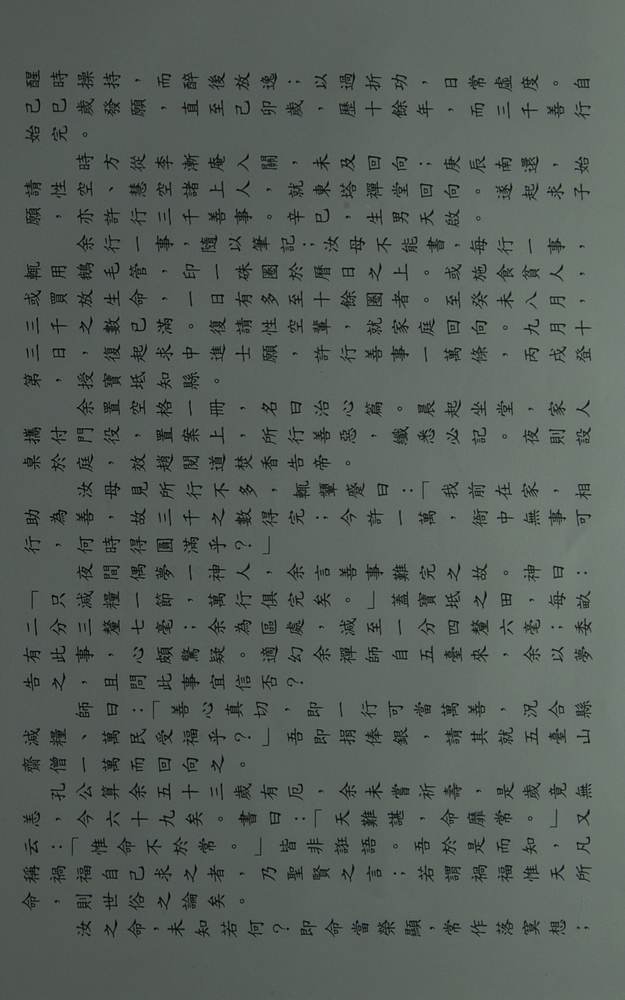 醒時操持，而醉後放逸；以過折功，日常虛度。自
己巳歲發願，直至己卯歲，歷十餘年，而三千善行
始完。
時方從李漸庵入關，未及回向；庚辰南還，始
請性空、慧空諸上人，就東塔禪堂回向。遂起求子
願，亦許行三千善事。辛巳，生男天啟。
余行一事，隨以筆記；汝母不能書，每行一事，
輒用鵝毛管，印一硃圈於曆日之上。或施食貧人，
或買放生命，一日有多至十餘圈者。至癸未八月，
三千之數已滿。復請性空輩，就家庭回向。九月十
三日，復起求中進士願，許行善事一萬條，丙戌登
第，授寶坻知縣。
余置空格一冊，名曰治心篇。晨起坐堂，家人
攜付門役，置案上，所行善惡，纖悉必記。夜則設
桌於庭，效趙閱道焚香告帝。
汝母見所行不多，輒顰蹙曰：「我前在家，相
助為善，故三千之數得完；今許一萬，衙中無事可
行，何時得圓滿乎？」
夜間偶夢一神人，余言善事難完之故。神曰：
「只減糧一節，萬行俱完矣。」蓋寶坻之田，每畝
二分三釐七毫；余為區處，減至一分四釐六毫；委
有此事，心頗驚疑。適幻余禪師自五臺來，余以夢
告之，且問此事宜信否？
師曰：「善心真切，即一行可當萬善，況合縣
減糧、萬民受福乎？」吾即捐俸銀，請其就五臺山
齋僧一萬而回向之。
孔公算余五十三歲有厄，余未嘗祈壽，是歲竟無
恙，今六十九矣。書曰：「天難諶，命靡常。」又
云：「惟命不於常。」皆非誑語。吾於是而知，凡
稱禍福自己求之者，乃聖賢之言；若謂禍福惟天所
命，則世俗之論矣。
汝之命，未知若何？即命當榮顯，常作落寞想；